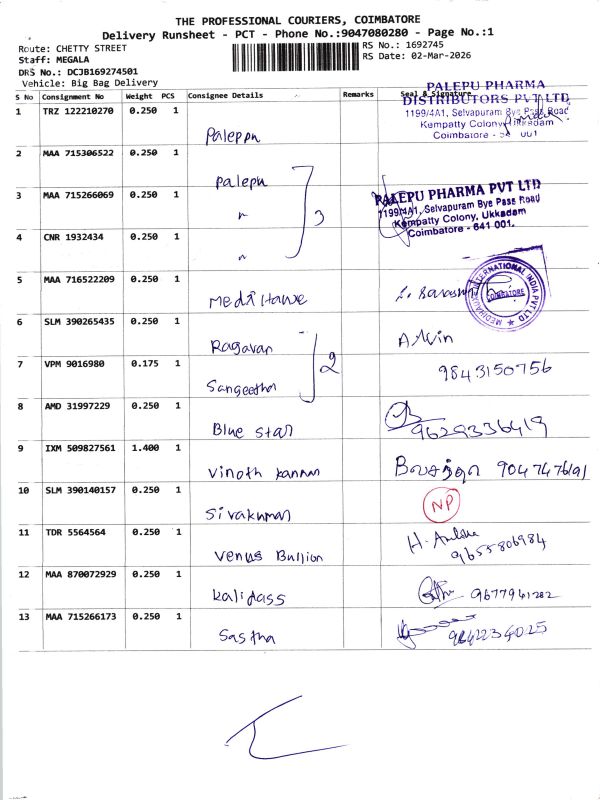 THE PROFESSIONAL COURIERS, COIMBATORE
Delivery Runsheet - PCT - Phone No.:9047080280 - Page No.:1
Route: CHETTY STREET
Staff: MEGALA
DRS No.: DCJB169274501
Vehicle: Big Bag Delivery
RS No.: 1692745
RS Date: 02-Mar-2026
S No Consignment No Weight PCS Consignee Details Remarks Seal & Signature
1 TRZ 122210270 0.250 1 Paleppu
PALEPU PHARMA
DISTRIBUTORS PVT LTD
1199/4A1, Selvapuram Bye Pass Road
Kempatty Colony, Ukkadam
Coimbatore - 001
2 MAA 715306522 0.250 1 Palepu
3 MAA 715266069 0.250 1 " 3
PALEPU PHARMA PVT LTD
1199/4A1, Selvapuram Bye Pass Road
Kempatty Colony, Ukkadam
Coimbatore - 641 001.
4 CNR 1932434 0.250 1 "
5 MAA 716522209 0.250 1
INTERNATIONAL INDIA PVT LTD
COIMBATORE
6 SLM 390265435 0.250 1 Ragavan
7 VPM 9016980 0.175 1 Sangeetha 2 9843150756
8 AMD 31997229 0.250 1 Blue star 9629336419
9 IXM 509827561 1.400 1 Vinoth kannan
10 SLM 390140157 0.250 1 Sivakumar NP
11 TDR 5564564 0.250 1 Venus Bullion 9655806984
12 MAA 870072929 0.250 1 kalidass 9677941282
13 MAA 715266173 0.250 1 Sastha 9842234025